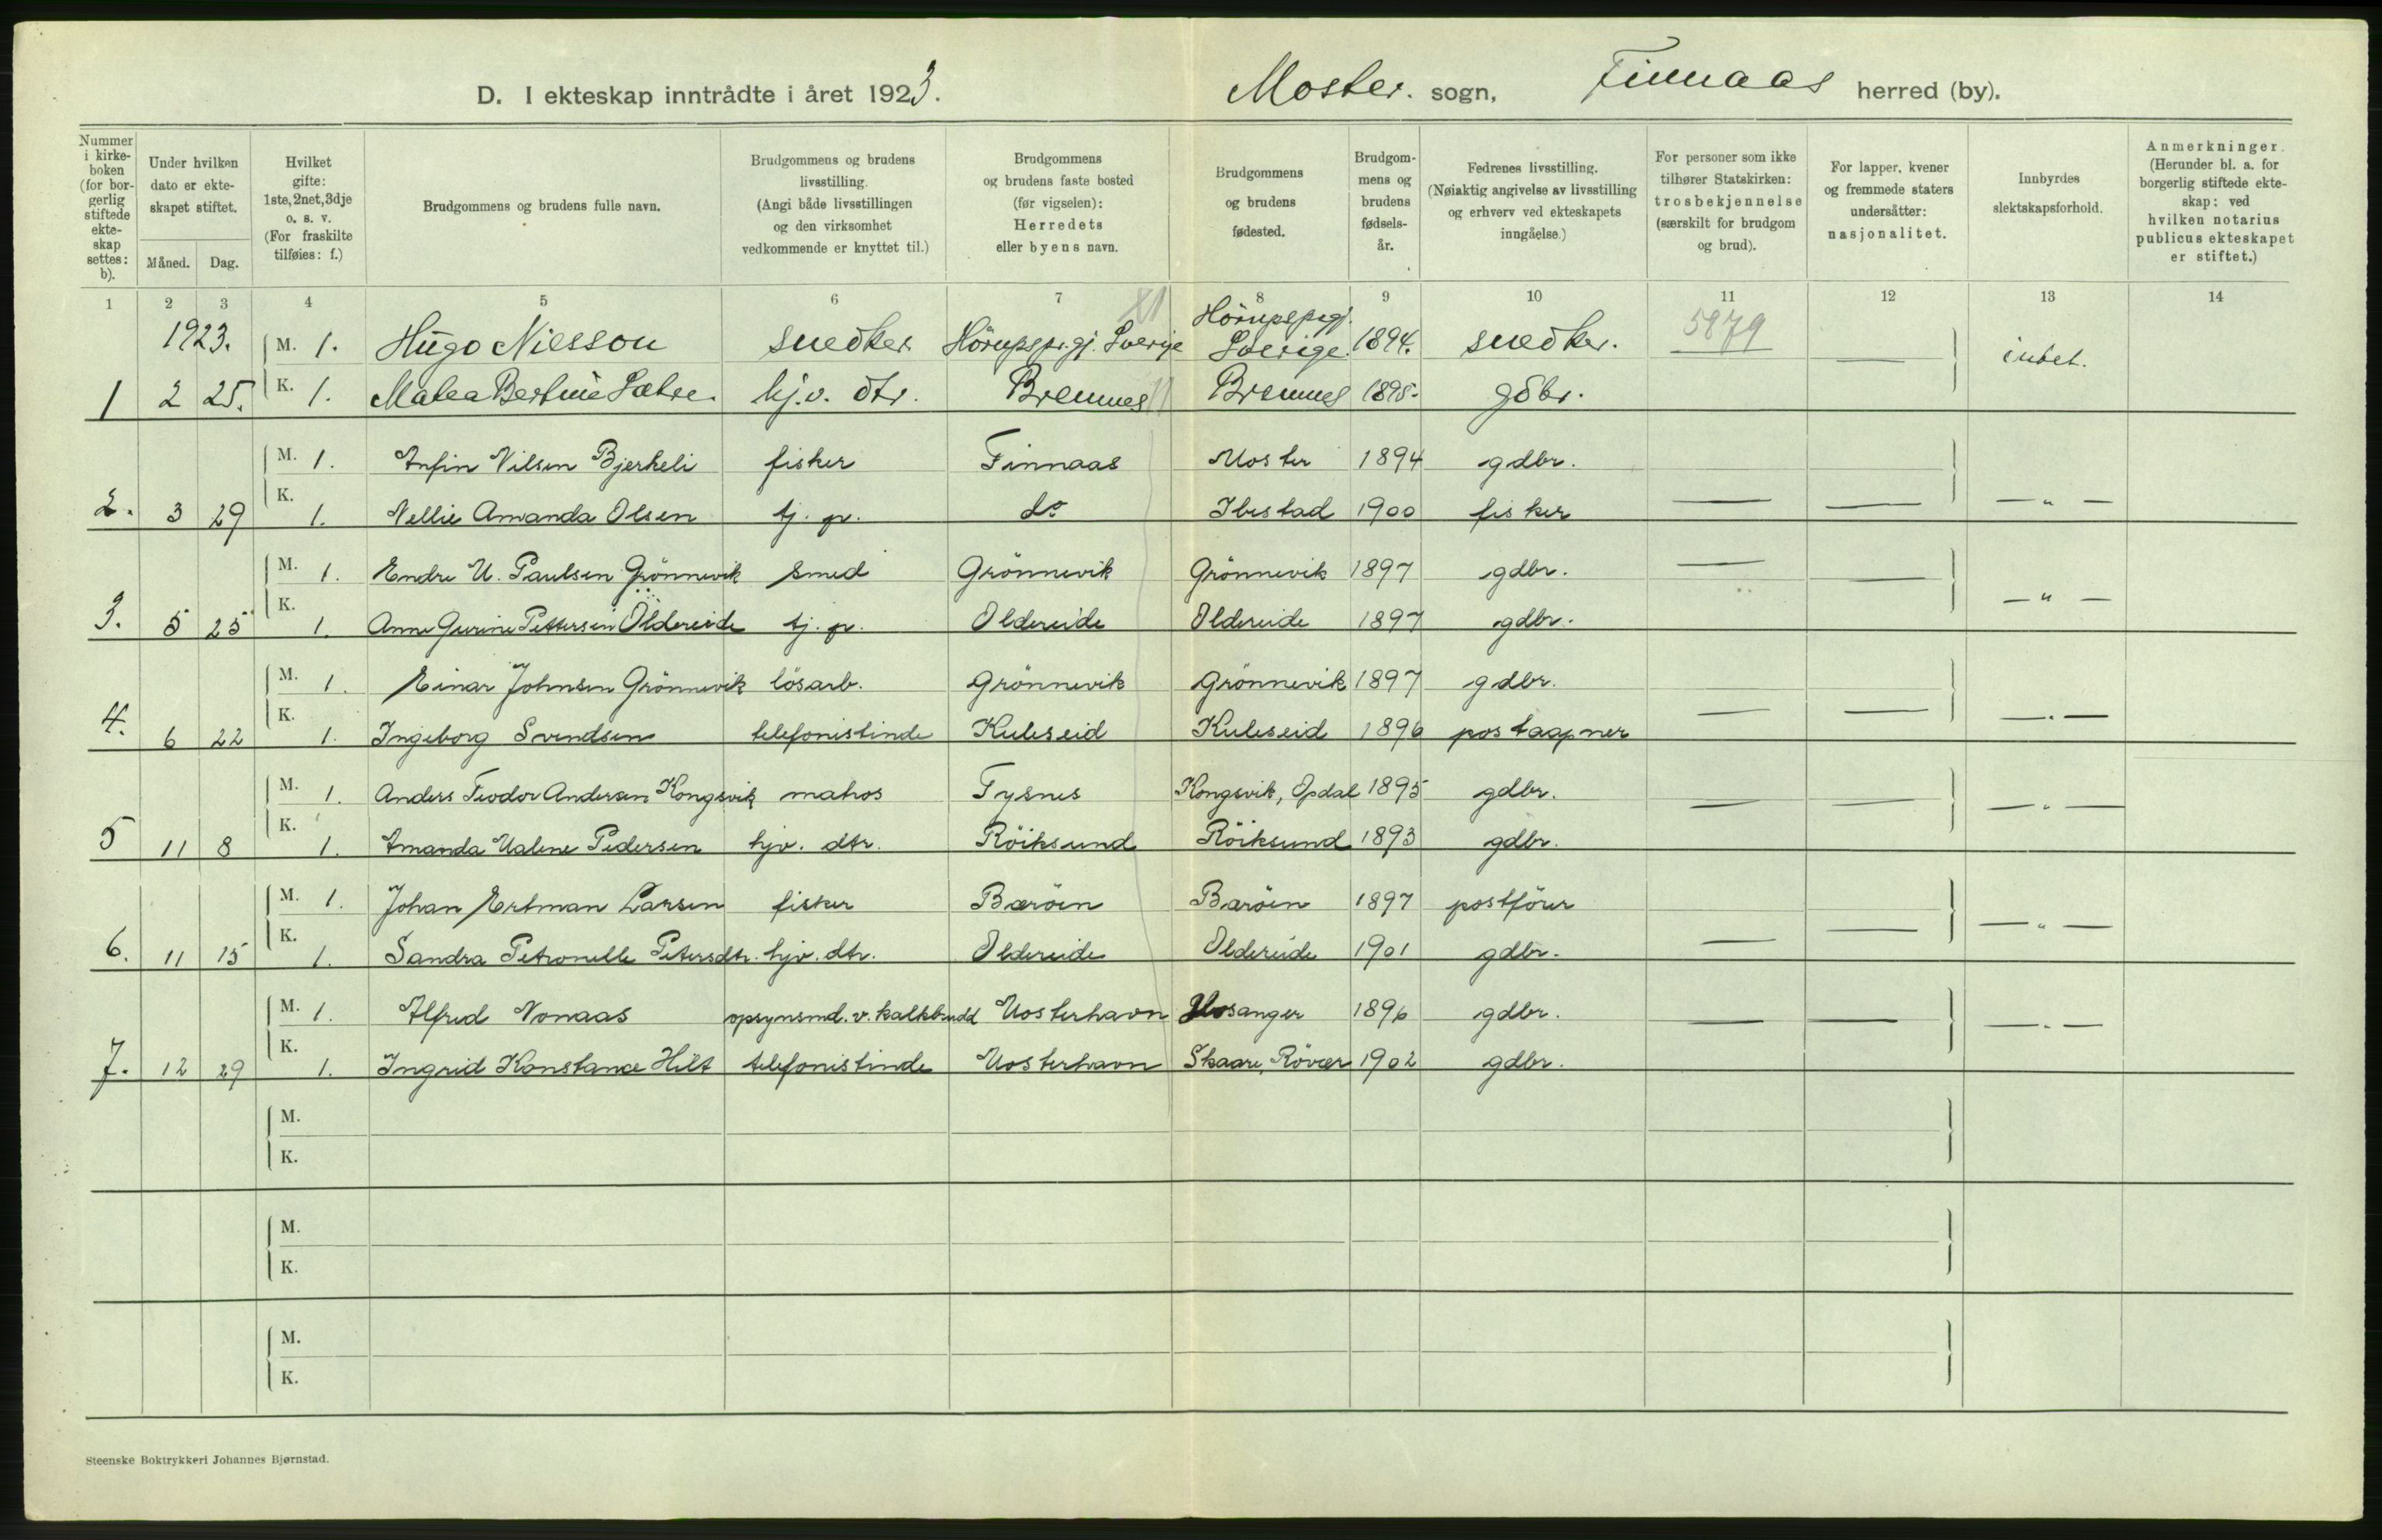 D. I ekteskap inntrådte i året 1923. Moster. sogn, Finnaas herred (by).
Nummer i kirke-boken (for bor-gerlig stiftede ekte-skap settes: b).
Under hvilken dato er ekte-skapet stiftet.
Måned. Dag.
Hvilket gifte: 1ste, 2net, 3dje o. s. v. (For fraskilte tilføies: f.)
Brudgommens og brudens fulle navn.
Brudgommens og brudens livsstilling. (Angi både livsstillingen og den virksomhet vedkommende er knyttet til.)
Brudgommens og brudens faste bosted (før vigselen): Herredets eller byens navn.
Brudgommens og brudens fødested.
Brudgom-mens og brudens fødsels-år.
Fedrenes livsstilling. (Nøiaktig angivelse av livsstilling og erhverv ved ekteskapets inngåelse.)
For personer som ikke tilhører Statskirken: trosbekjennelse (særskilt for brudgom og brud).
For lapper, kvener og fremmede staters undersåtter: nasjonalitet.
Innbyrdes slektskapsforhold.
Anmerkninger. (Herunder bl. a. for borgerlig stiftede ekte-skap: ved hvilken notarius publicus ekteskapet er stiftet.)
1 2 3 4 5 6 7 8 9 10 11 12 13 14
1923. M. 1. Hugo Nilsson snedker Hörupspr.gj. Sverige Hörupsprgj. Sverige. 1894. snedker. 5879 — intet.
1 2 25. K. 1. Malea Bertine Sætre. hj.v. dtr. Bremnes Bremnes 1898. gdbr.
M. 1. Anfin Nilsen Bjerkeli fisker Finnaas Moster 1894 gdbr.
2. 3 29 K. 1. Nellie Amanda Olsen tj. p. do Ibestad 1900 fisker — — — " —
M. 1. Endre M. Paulsen Grönnevik smed Grönnevik Grönnevik 1897 gdbr. — —
3. 5 25 K. 1. Anne Gurine Pettersen Oldereide tj. p. Oldereide Oldereide 1897 gdbr. — " —
M. 1. Einar Johnsen Grönnevik lösarb. Grönnevik Grönnevik 1897 gdbr.
4. 6 22 K. 1. Ingeborg Svendsen telefonistinde Kuleseid Kuleseid 1896 postaapner — — — " —
M. 1. Anders Teodor Andersen Kongsvik matros Tysnes Kongsvik, Opdal 1895 gdbr.
5 11 8 K. 1. Amanda Malene Pedersen hjv. dtr. Röiksund Röiksund 1893 gdbr. — — — " —
M. 1. Johan Ertman Larsen fisker Baröen Baröen 1897 postförer
6. 11 15 K. 1. Sandra Petronelle Petersdtr. hjv. dtr. Oldereide Oldereide 1901 gdbr. — — — " —
M. 1. Alfred Nonaas opsynsmd. v. kalkbrudd Mosterhavn Hosanger 1896 gdbr.
7. 12 29 K. 1. Ingrid Konstance Hilt telefonistinde Mosterhavn Skaare, Rövær 1902 gdbr. — — — " —
M.
K.
M.
K.
M.
K.
Steenske Boktrykkeri Johannes Bjørnstad.